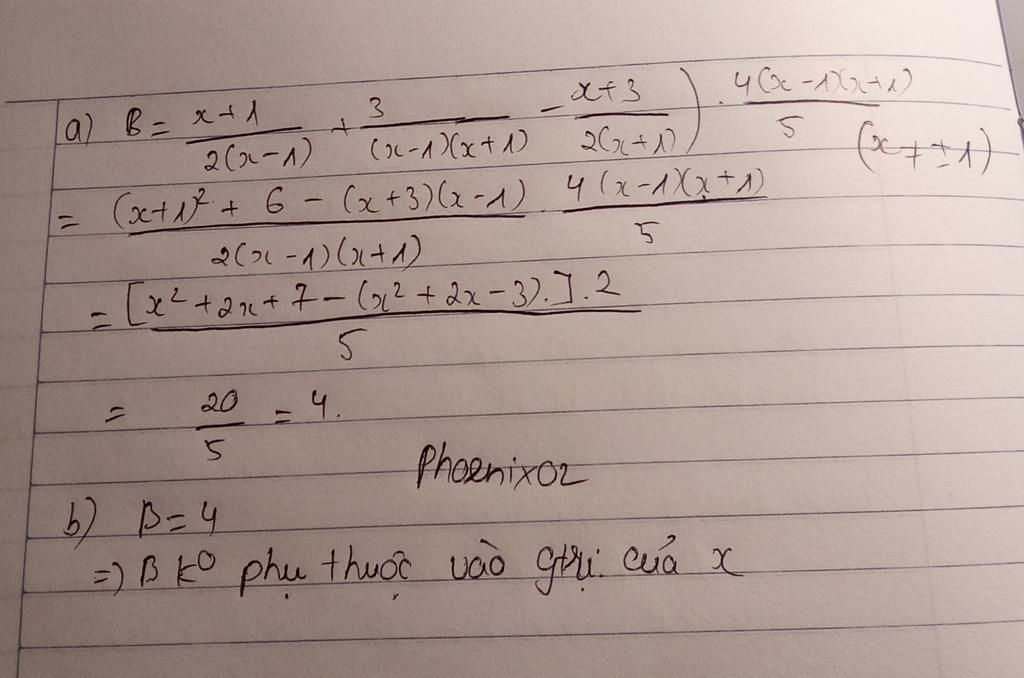 a) B = \frac{x+1}{2(x-1)} + \frac{3}{(x-1)(x+1)} - \frac{x+3}{2(x+1)}) . \frac{4(x-1)(x+1)}{5} (x \neq \pm 1)
= \frac{(x+1)^2 + 6 - (x+3)(x-1)}{2(x-1)(x+1)} . \frac{4(x-1)(x+1)}{5}
= \frac{[x^2 + 2x + 7 - (x^2 + 2x - 3).] . 2}{5}
= \frac{20}{5} = 4.
Phoenix02
b) B = 4
=) B ko phụ thuộc vào gtrị. của x